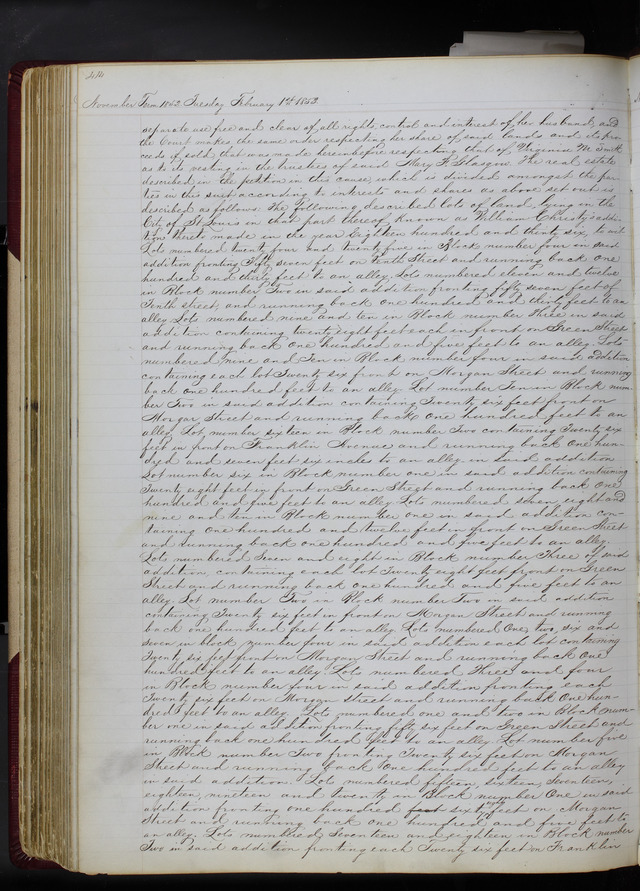 44
November Term 1852 Tuesday February 1st 1853
separate use free and clear of all right, control and interest of her husband, and
the Court makes the same order respecting her share of said lands and its pro
ceeds if sold, that was made hereinbefore respecting that of Virginia M.
as to its vesting in the trustees of said Mary F. Glasgow. The real estate
described in the petition in this cause, which is divided amongst the par
ties in this suit according to interests and shares as above set out is
described as follows. The following described lots of land, lying in the
City of St Louis in that part thereof known as William Christy's addi
tion thereto made in the year Eighteen hundred and thirty six, to wit
Lots numbered twenty four and twenty five in Block number four in said
addition fronting Fifty seven feet on Tenth Street and running back one
hundred and thirty feet to an alley. Lots numbered eleven and twelve
in Block number Two in said addition fronting fifty seven feet of
Tenth street and running back one hundred and thirty feet to an
alley. Lots numbered nine and ten in Block number Three in said
addition containing twenty eight feet each in front on Green Street
and running back one hundred and five feet to an alley. Lots
numbered nine and Ten in Block number four in said addition
containing each lot Twenty six front on Morgan Street and running
back one hundred feet to an alley. Lot number Ten in Block num
ber Two in said addition containing Twenty six feet front on
Morgan Street and running back One hundred feet to an
alley. Lot number sixteen in Block number Two containing Twenty six
feet in front on Franklin Avenue and running back One hun-
dred and seven feet six inches to an alley in said addition
Lot number six in Block number one in said addition containing
Twenty eight feet in front on Green Street and running back One
hundred and five feet to an alley. Lots numbered seven eight and
nine and Ten in Block number one in said addition con-
taining One hundred and twelve feet in front on Green Street
and running back one hundred and five feet to an alley.
Lots numbered Seven and eight in Block number Three of said
addition, containing each lot Twenty eight feet front on Green
Street and running back one hundred and five feet to an
alley. Lot number Two in Block number Two in said addition
containing Twenty six feet in front on Morgan Street and running
back one hundred feet to an alley. Lots numbered One, two, six and
seven in block number four in said addition each lot containing
Twenty six feet front on Morgan Street and running back One
hundred feet to an alley. Lots numbered Three and four
in Block number four in said addition fronting each
Twenty six feet on Morgan Street and running back One hun-
dred feet to an alley. Lots numbered one and two in Block num-
ber one in said addition fronting fifty six feet on Green Street and
running back one hundred feet to an alley. Lot number five
in Block number Two fronting Twenty six feet on Morgan
Street and running back One hundred feet to an alley
in said addition. Lots numbered fifteen, sixteen, Seventeen,
eighteen, nineteen and twenty in Block number One in said
addition fronting one hundred feet sixty eight feet on Morgan
Street and running back one hundred and five feet to
an alley. Lots numbered Seventeen and eighteen in Block number
Two in said addition fronting each Twenty six feet on Franklin